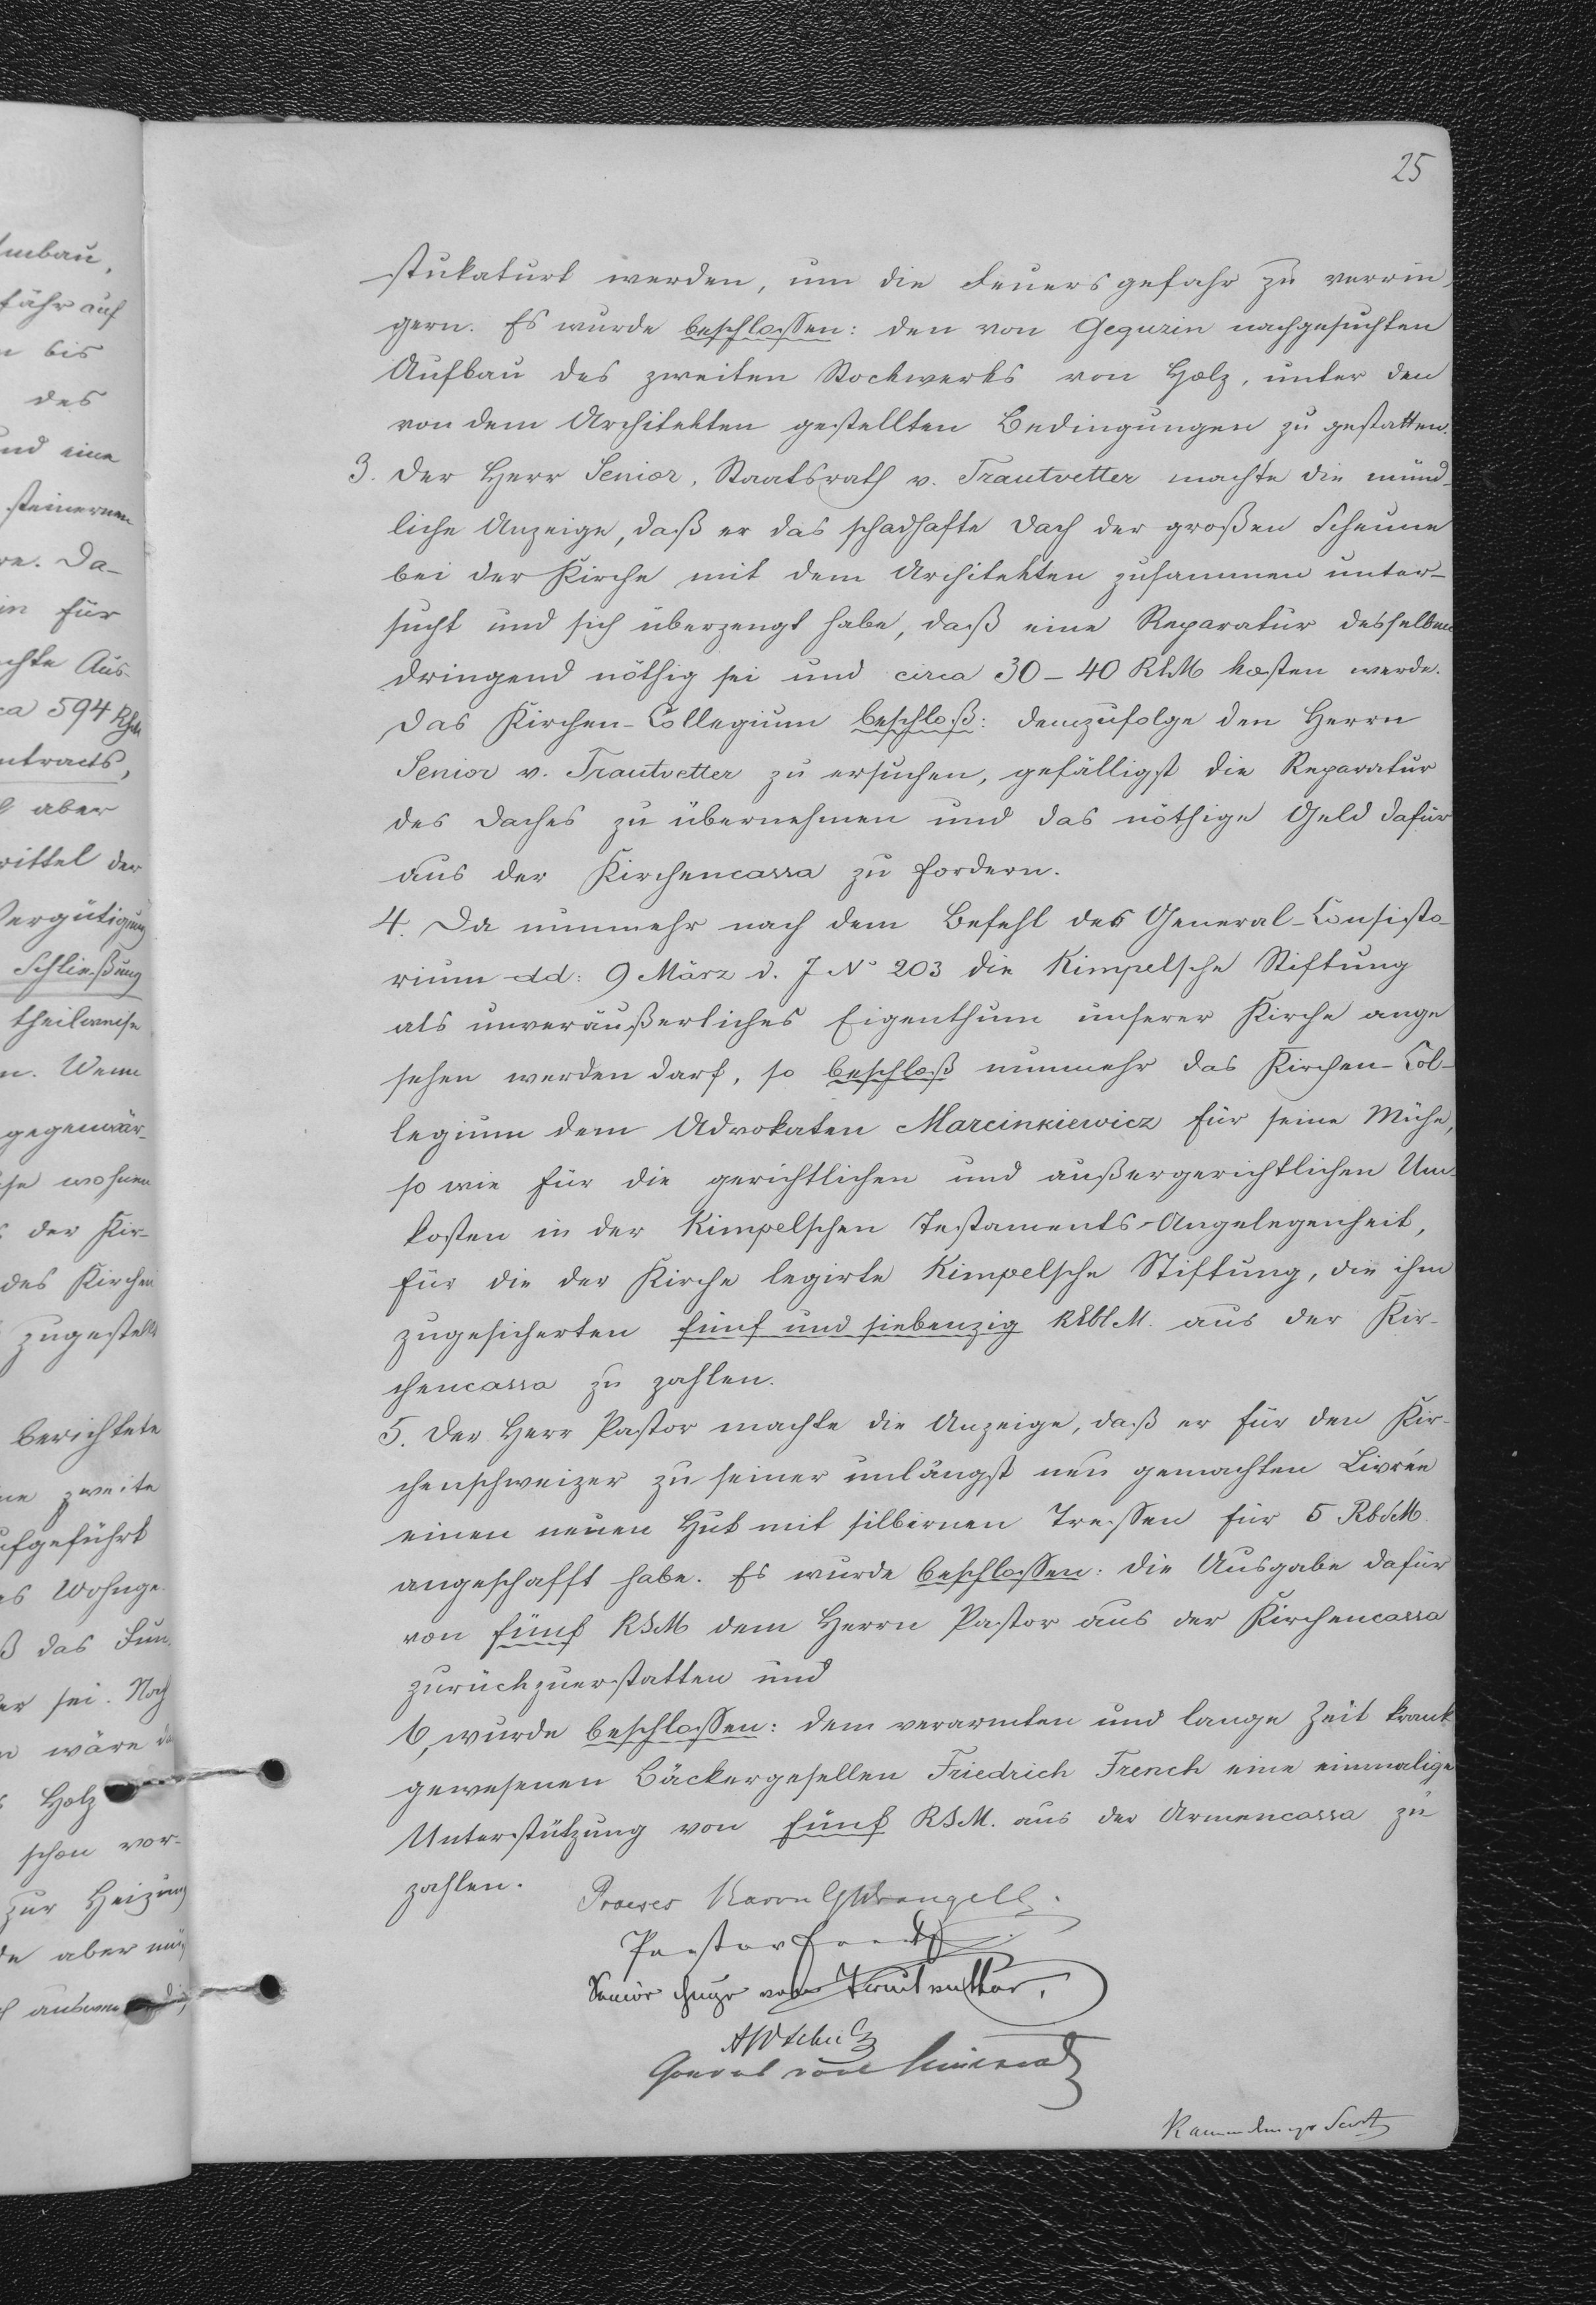 25
stukaturt werden, um die Feuersgefahr zu verrin-
gern. Es wurde beschlossen: den von Geguzin nachgesuchten
Aufbau des zweiten Stockwerks von Holz, unter den
von dem Architekten gestellten Bedingungen zu gestatten.
3. Der Herr Senior, Staatsrath v. Trautvetter machte die münd-
liche Anzeige, daß er das schadhafte Dach der großen Scheune
bei der Kirche mit dem Architekten zusammen unter-
sucht und sich überzeugt habe, daß eine Reparatur desselben
dringend nöthig sei und circa 30 – 40 RbM kosten werde.
Das Kirchen-Collegium beschloß: demzufolge den Herrn
Senior v. Trautvetter zu ersuchen, gefälligst die Reparatur
des Daches zu übernehmen und das nöthige Geld dafür
aus der Kirchencassa zu fordern.
4. Da nunmehr nach dem Befehl des General-Consisto-
rium dd: 9 März d. J No 203 die Kimpelsche Stiftung
als unveräußerliches Eigenthum unserer Kirche ange
sehen werden darf, so beschloß nunmehr das Kirchen-Col-
legium dem Advokaten Marcinkiewicz für seine Mühe,
so wie für die gerichtlichen und außergerichtlichen Un-
kosten in der Kimpelschen Testaments-Angelegenheit,
für die der Kirche legirte Kimpelsche Stiftung, die ihm
zugesicherten fünf und siebenzig RblM. aus der Kir-
chencassa zu zahlen.
5. Der Herr Pastor machte die Anzeige, daß er für den Kir-
chenschweizer zu seiner unlängst neu gemachten Livrée
einen neuen Hut mit silbernen Tressen für 5 RbSM.
angeschafft habe. Es wurde beschlossen: die Ausgabe dafür
von fünf RSM dem Herrn Pastor aus der Kirchencassa
zurückzuerstatten und
6, wurde beschlossen: dem verarmten und lange Zeit krank
gewesenen Bäckergesellen Friedrich French eine einmalige
Unterstützung von fünf RSM. aus der Armencassa zu
zahlen.
Praeses Baron Wrangell.
Pastor
Senior von Trautvetter.